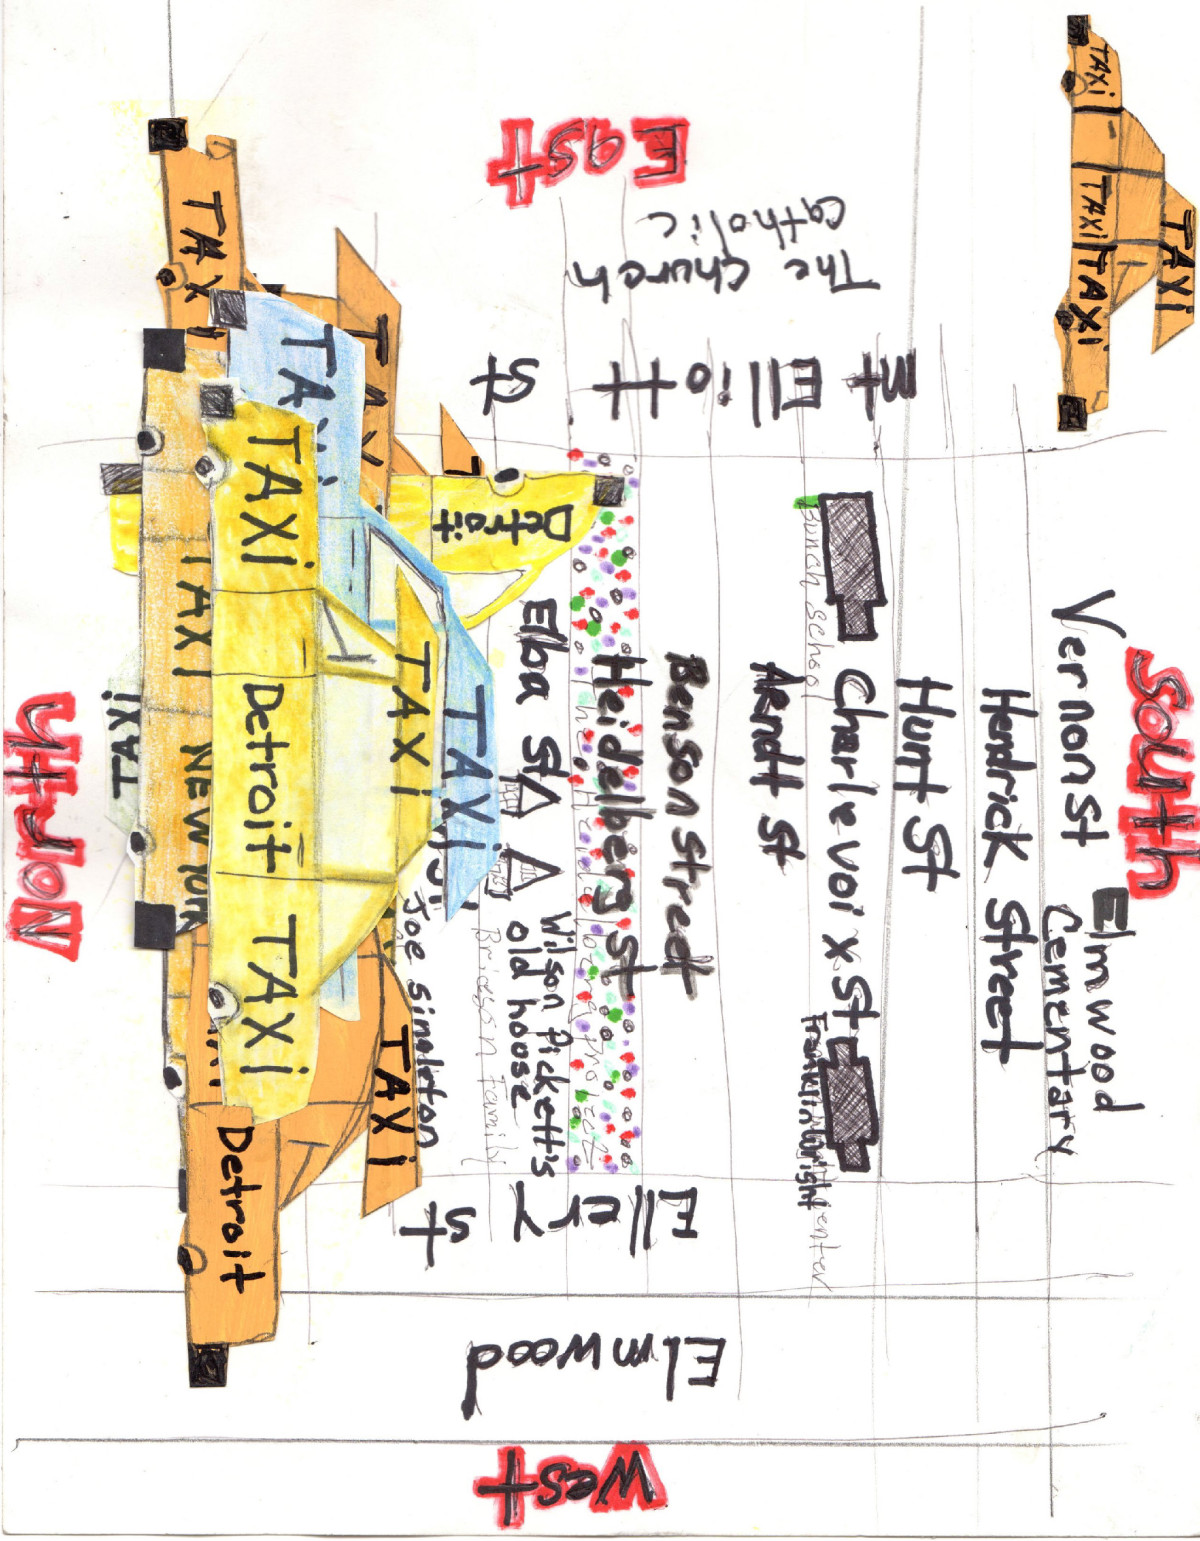 South
Vernon St
Elmwood
Cementary
Hendrick Street
Hurt St
Charlevoix St
Franklin Wright
Center
school
Aendt St
Benson Street
Heidelberg St
The Heidelberg Project
Elba St
Wilson Pickett's
old hoose
Bridgen Family
Joe Singleton
East
The Church
Catholic
Mt Elliott
St
Ellery
St
Elmwood
West
North
TAXi
TAXi
TAXi
TAXi
TAXi
TAXi
TAXi
TAXi
TAXi
Detroit
TAXi
Detroit
TAXi
TAXi
TAXi
TAXi
NEW YORK
TAXi
TAXi
Detroit